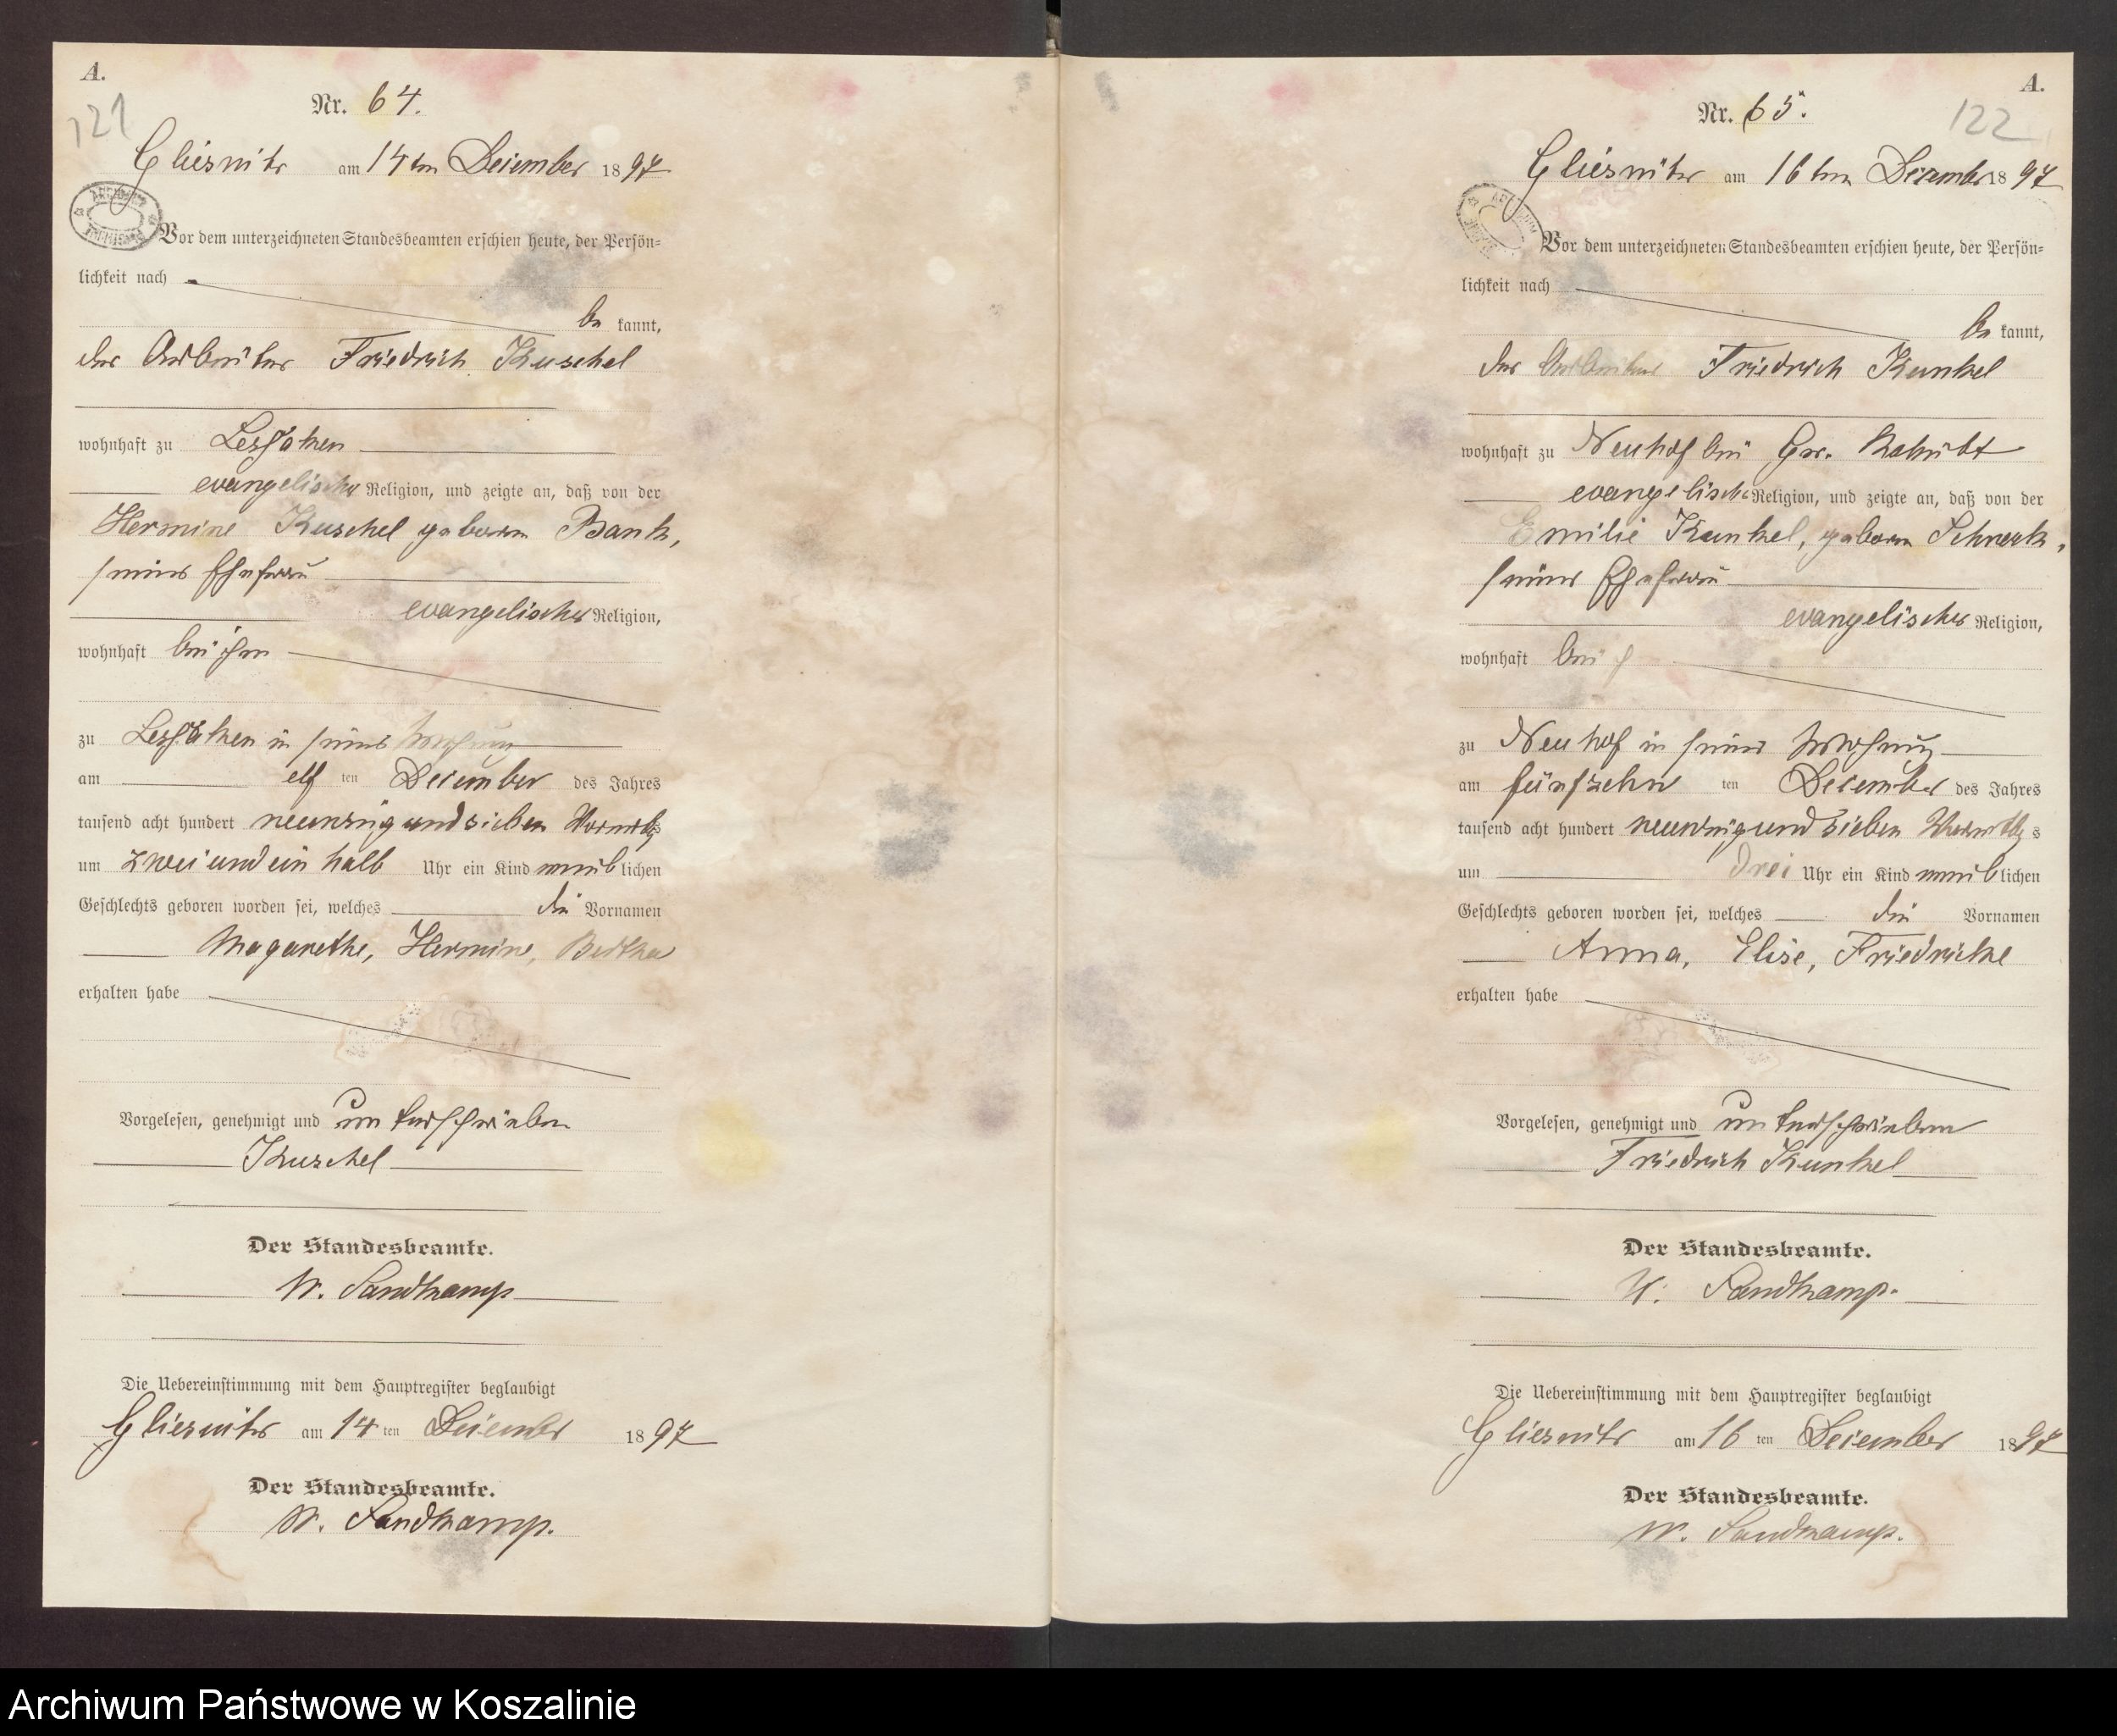 A.
121
Nr. 64.
Gliesnitz am 14ten Dezember 1897
Vor dem unterzeichneten Standesbeamten erschien heute, der Persön-
lichkeit nach
be kannt,
der Arbeiter Friedrich Kuschel
wohnhaft zu
evangelischer Religion, und zeigte an, daß von der
Hermine Kuschel geboren Bank,
seiner Ehefrau
evangelischer Religion,
wohnhaft bei ihm
zu in seiner Wohnung
am elf ten December des Jahres
tausend acht hundert neunzig und sieben Vormittgs
um zwei und ein halb Uhr ein Kind weiblichen
Geschlechts geboren worden sei, welches die Vornamen
Magarethe, Hermine, Bertha
erhalten habe
Vorgelesen, genehmigt und unterschrieben
Kuschel
Der Standesbeamte.
W. Sandkamp
Die Uebereinstimmung mit dem Hauptregister beglaubigt
Gliesnitz am 14 ten Dezember 1897
Der Standesbeamte.
W. Sandkamp.
A.
122
Nr. 65.
Gliesnitz am 16ten Dezember 1897
Vor dem unterzeichneten Standesbeamten erschien heute, der Persön-
lichkeit nach
be kannt,
der Arbeiter Friedrich Kunkel
wohnhaft zu Neuhof bei Gr.
evangelischer Religion, und zeigte an, daß von der
Emilie Kunkel, geboren
seiner Ehefrau
evangelischer Religion,
wohnhaft bei
zu Neuhof in seiner Wohnung
am fünfzehn ten December des Jahres
tausend acht hundert neunzig und sieben Vormittgs
um drei Uhr ein Kind weiblichen
Geschlechts geboren worden sei, welches die Vornamen
Anna, Elise, Friedricke
erhalten habe
Vorgelesen, genehmigt und unterschrieben
Friedrich Kunkel
Der Standesbeamte.
W. Sandkamp.
Die Uebereinstimmung mit dem Hauptregister beglaubigt
Gliesnitz am 16 ten Dezember 1897
Der Standesbeamte.
W. Sandkamp.
Archiwum Państwowe w Koszalinie